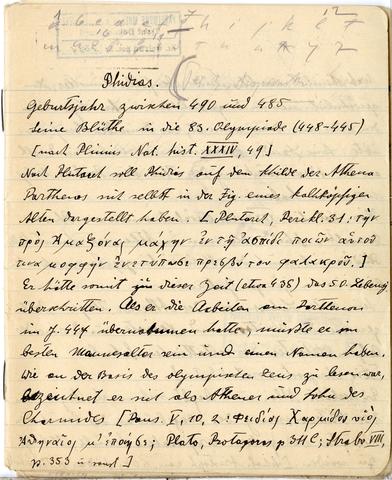 Phidias.
Geburtsjahr zwischen 490 und 485
Seine Blüthe in die 83. Olympiade (448-445)
[nach Plinius Nat. hist. XXXIV, 49]
Nach Plutarch soll Phidias auf dem Schilde der Athena
Parthenos sich selbst in der Fig. eines kahlköpfigen
Alten dargestellt haben. [Plutarch, Perikl. 31: τὴν
πρὸς Ἀμαζόνας μάχην ἐν τῇ ἀσπίδι ποιῶν αὑτοῦ
τινα μορφὴν ἐνετύπωσε πρεσβύτου φαλακροῦ.]
Er hätte somit zu dieser Zeit (etwa 438) das 50. Lebensj
überschritten. Als er die Arbeiten am Parthenon
im J. 447 übernommen hatte, müsste er im
besten Mannesalter sein und einen Namen haben.
Wie an der Basis des olympischen Zeus zu lesen war,
bezeichnet er sich als Athener und Sohn des
Charmides [Paus. V, 10, 2: Φειδίας Χαρμίδου υἱὸς
Ἀθηναῖος μ' ἐποίησε; Plato, Protagoras p 311 C; Strabo VIII,
p. 353 u sonst]